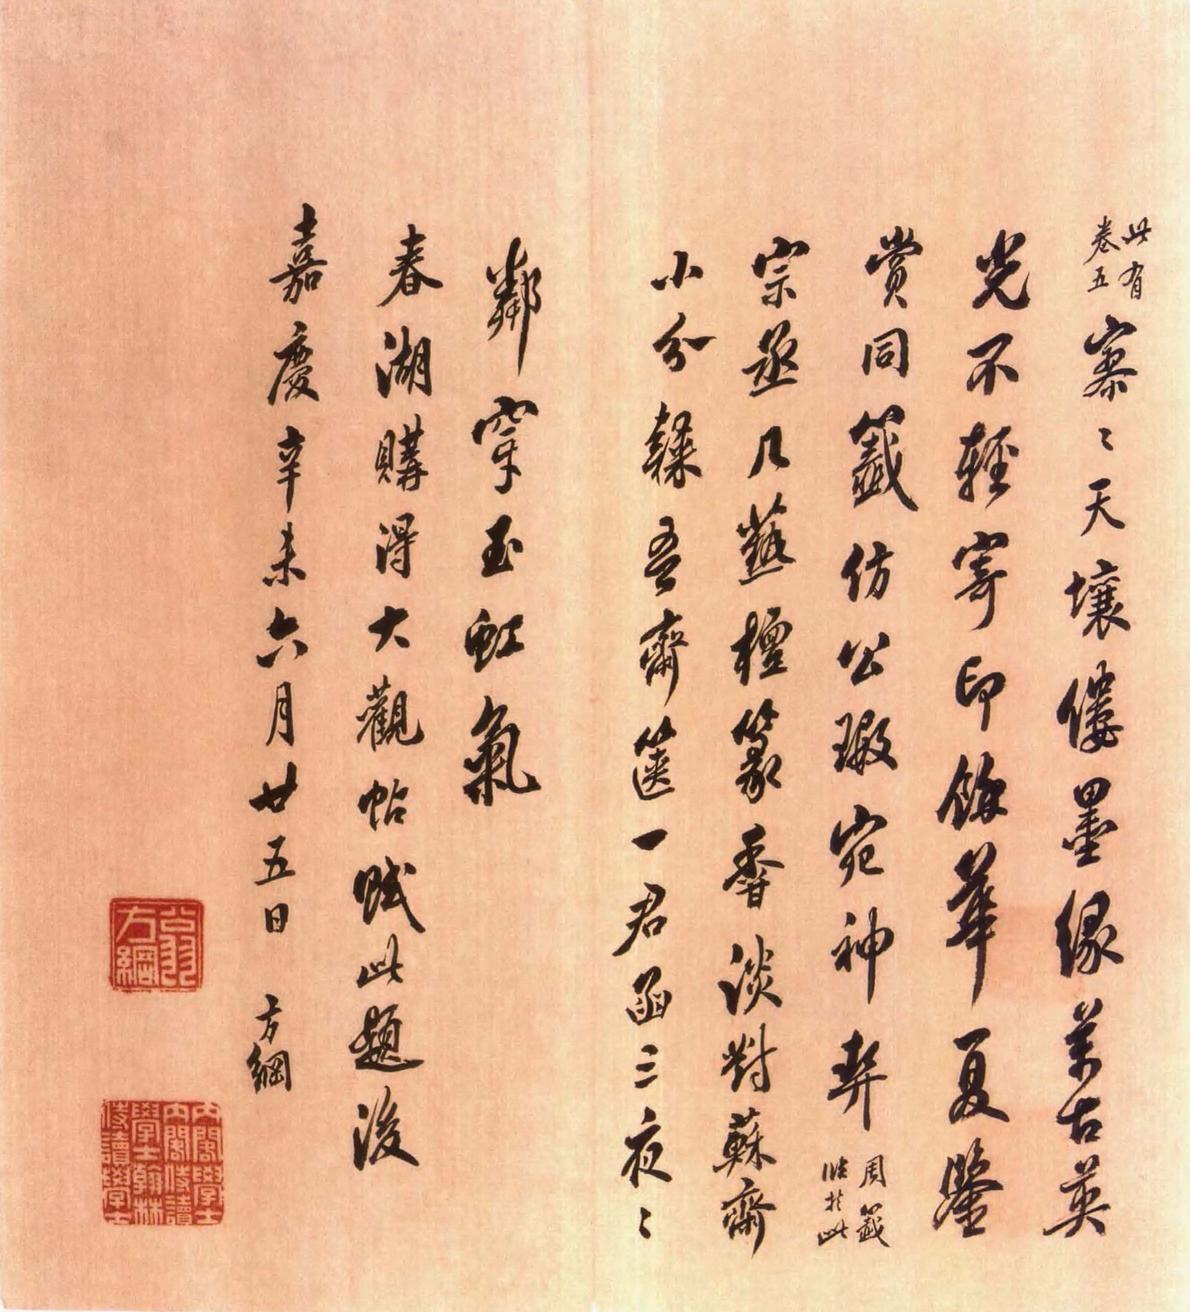 此有
卷五
寥〻天壤僂墨緣萬古英
光不輕寄印餘華夏鑒
賞同籖仿公瑕宛神契
周籖
臨於此
宗丞几爇檀篆香淡對蘇齋
小分隸吾齋篋一君函三夜〻
鄰穿玉虹氣
春湖購得大觀帖賦此題後
嘉慶辛未六月廿五日 方綱
翁方綱
內閣學士內閣侍讀學士翰林侍讀學士